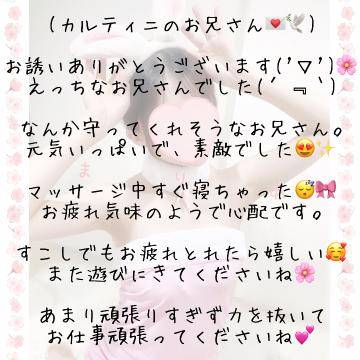 (カルティニのお兄さん💌🕊️)
お誘いありがとうございます('▽')🌸
えっちなお兄さんでした(´﹃｀)
なんか守ってくれそうなお兄さん。
元気いっぱいで、素敵でした😍✨
マッサージ中すぐ寝ちゃった😴🎀
お疲れ気味のようで心配です。
すこしでもお疲れとれたら嬉しい🥰
また遊びにきてくださいね🌸
あまり頑張りすぎず力を抜いて
お仕事頑張ってくださいね💕